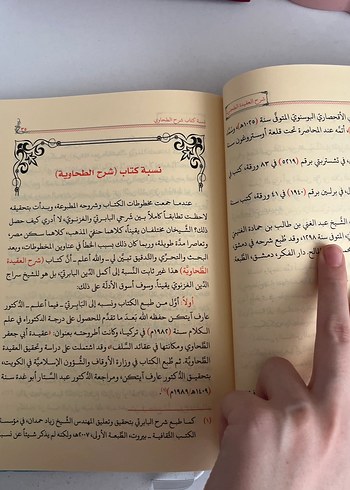 شرح العقيدة الطحاوية
الأقحصاري البوسنوي المتوفى سنة (١٠٢٥هـ) وسنة
، أنه عند المحاصرة تحت قلعة أوسترغون سنة
في تشستربتي برقم (٥٢١٩) في ٨٣ ورقة، كتب في
، في برلين برقم (١٩٤٠) في ٤١ ورقة، كتبت سنة
الشيخ عبد الغني بن طالب بن حمادة الغنيمي
المتوفى سنة ١٢٩٨، وقد طبع شرحه في دمشق
الح. دار الفكر، دمشق، الطبعة
نسبة كتاب شرح الطحاوي
نسبة كتاب (شرح الطحاوية)
عندما جمعت مخطوطات الكتاب وشروحه المطبوعة، وبدأت بتحقيقه
لاحظت تطابقاً كاملاً بين شرحي البابرتي والغزنوي، لا أدري كيف حصل
ذلك؟ الشيخان مختلفان يقيناً، كلاهما حنفي المذهب، كلاهما سكن مصر،
وتعاصرا مدة طويلة، وربما كان ذاك بسبب الخطأ في عناوين المخطوطات، وبعد
البحث والتحري والتدقيق تبين لي ـ والله أعلم ـ أن كتاب (شرح العقيدة
الطحاوية) هذا غير ثابت النسبة إلى أكمل الدين البابرتي، بل هو للشيخ سراج
الدين الغزنوي يقيناً. وسوف أسوق الأدلة على ذلك:
أولاً: أول من طبع الكتاب ونسبه إلى البابرتي ـ فيما أعلم ـ الدكتور
عارف آيتكن حفظه الله بعدما تقدم للحصول على درجة الدكتوراه في علم
الكلام سنة (١٩٨٢م) في تركيا، وكانت أطروحته بعنوان: «عقيدة أبي جعفر
الطحاوي ومكانتها في عقائد السلف» وقد اشتملت على دراسة وتحقيق العقيدة
الطحاوية. ثم طبع الكتاب في وزارة الأوقاف والشؤون الإسلامية في الكويت،
بتحقيق الدكتور عارف آيتكن، ومراجعة الدكتور عبد الستار أبو غدة سنة
(١٤٠٩هـ/١٩٨٩م)(١).
(١) كما طبع شرح البابرتي بتحقيق وتعليق المهندس الشيخ زياد حمدان، في مؤسسة
الكتب الثقافية ـ بيروت، الطبعة الأولى، ٢٠٠٧هـ، ولكنه لم يذكر شيئاً عن نسـ